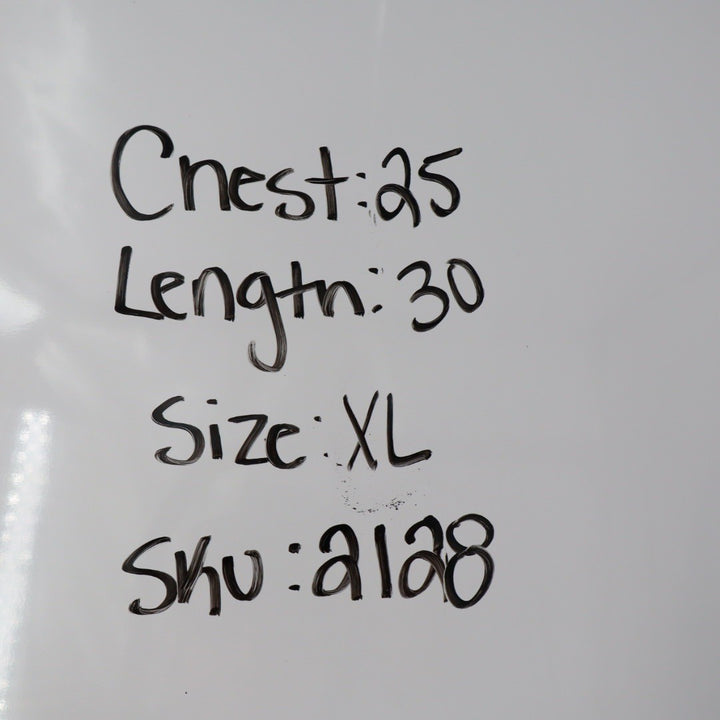 Chest:25
Length:30
Size:XL
Sku:2128